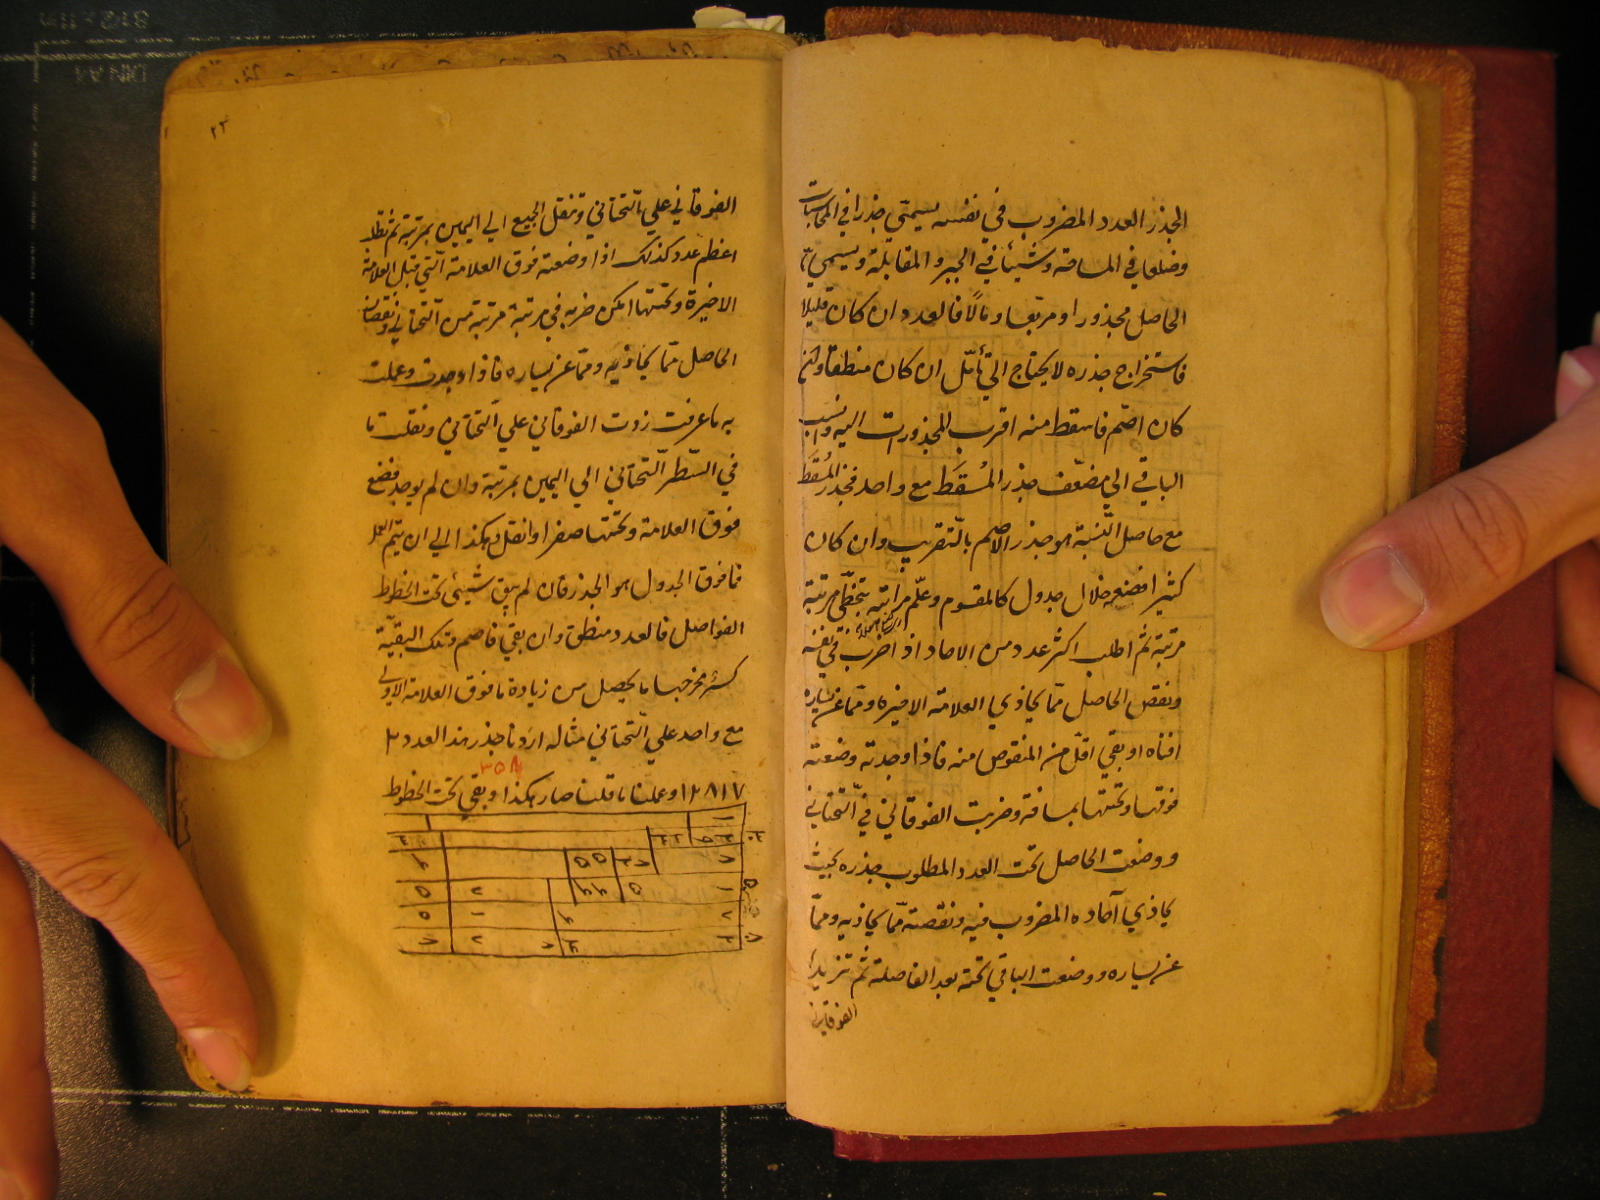 الجذر العدد المضروب في نفسه يسمّي جذرا في المحاسبات
وضلعا في المساحة وشيئا في الجبر و المقابلة ويسمي
الحاصل مجذورا و مربعا و مالًا فالعدد ان كان قليلا
فاستخراج جذره لا يحتاج الي تأمّل ان كان منطقا وان
كان اصّم فاسقط منه اقرب المجذورات اليه وانسب
الباقي الي مضعّف جذر المُسقَط مع واحد فجذر المُسقَط
مع حاصل النّسبة هو جذر الاصم بالتّقريب وان كان
كثيرا فضعه خلال جدول كالمقسوم وعلّم مراتبه بتخطّي مرتبة
مرتبة ثم اطلب اكثر عدد من الاحاد اذا ضرب في نفسه
ونقص الحاصل ممّا يحاذي العلامة الاخيرة وممّا عن يساره
افناه او بقي اقلّ من المنقوص منه فاذا وجدته وضعته
فوقها وتحتها بمسافة وضربت الفوقاني في التّحتاني
ووضعت الحاصل تحت العدد المطلوب جذره بحيث
يحاذي آحاده المضروب فيه ونقصته ممّا يحاذيه وممّا
عن يساره ووضعت الباقي تحته بعد الفاصلة ثم تزيد
الفوقاني
٢٣
الفوقاني علي التّحتاني وتنقل الجميع الي اليمين بمرتبة ثم تطلب
اعظم عدد كذلك اذا وضعته فوق العلامة الّتي قبل العلامة
الاخيرة وتحتها امكن ضربه في مرتبة مرتبة من التّحتاني ونقصان
الحاصل ممّا يحاذيه وممّا عن يساره فاذا وجدت وعملت
به ما عرفت زدت الفوقاني علي التّحتاني ونقلت ما
في السّطر التّحتاني الي اليمين بمرتبة وان لم يوجد فضع
فوق العلامة وتحتها صفرا وانقل وهكذا الي ان يتم العمل
فما فوق الجدول هو الجذر فان لم يبق شيئ تحت الخطوط
الفواصل فالعدد منطق وان بقي فاصم وتلك البقيّة
كسر مخرجها ما يحصل من زيادة ما فوق العلامة الاولي
مع واحد علي التّحتاني مثاله اردنا جذر هذا العدد ٢
٣٥٨
١٢٨١٧ وعملنا ما قلنا صار هكذا وبقي تحت الخطوط